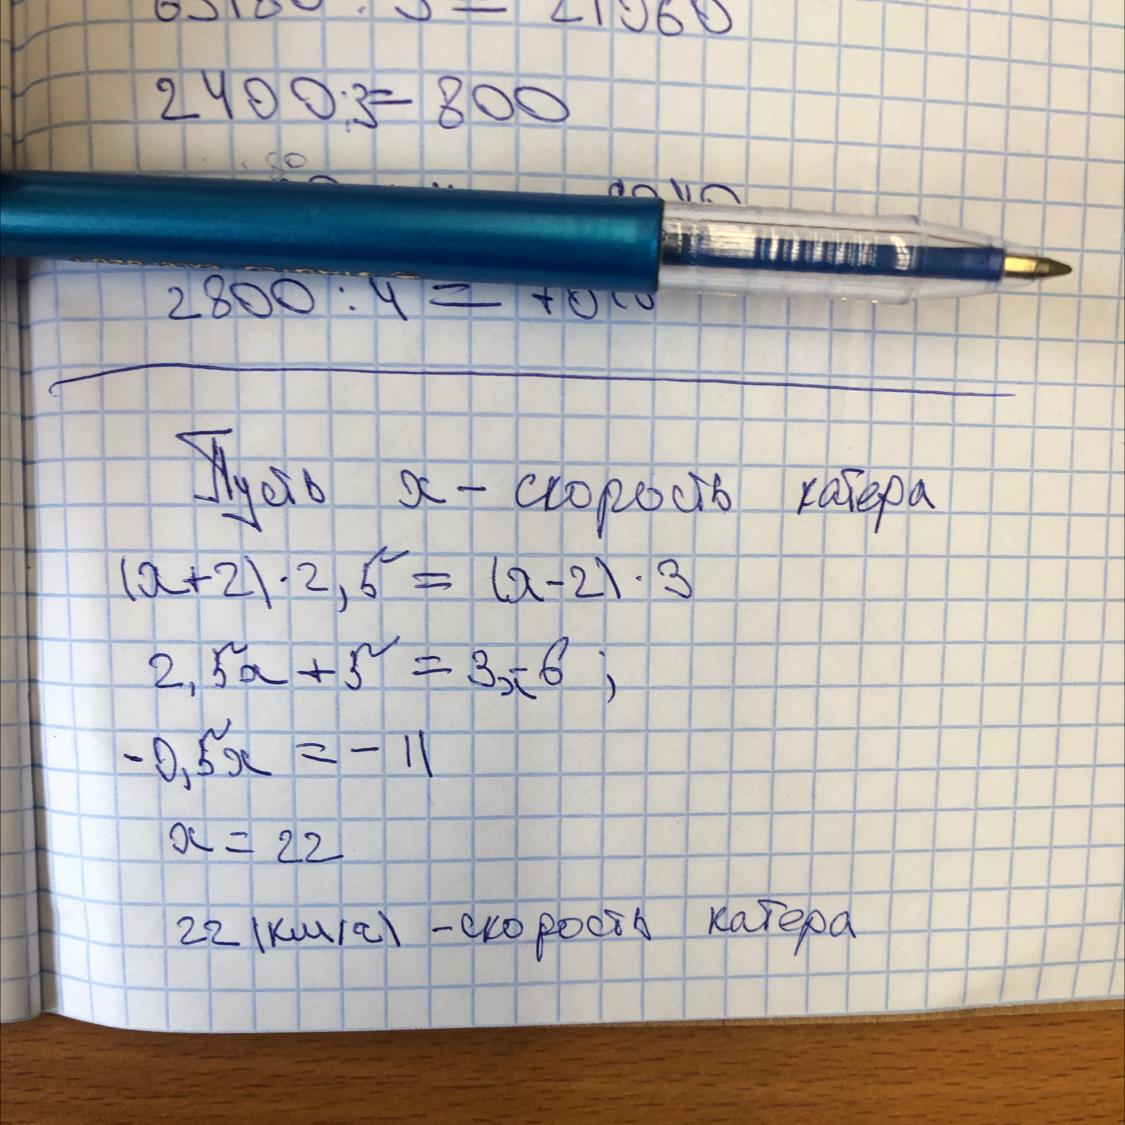 2400:3=800
2800 : 4 =
Пусть x - скорость катера
(x+2)·2,5 = (x-2)·3
2,5x + 5 = 3x-6 ;
-0,5x = - 11
x = 22
22 (км/ч) - скорость катера